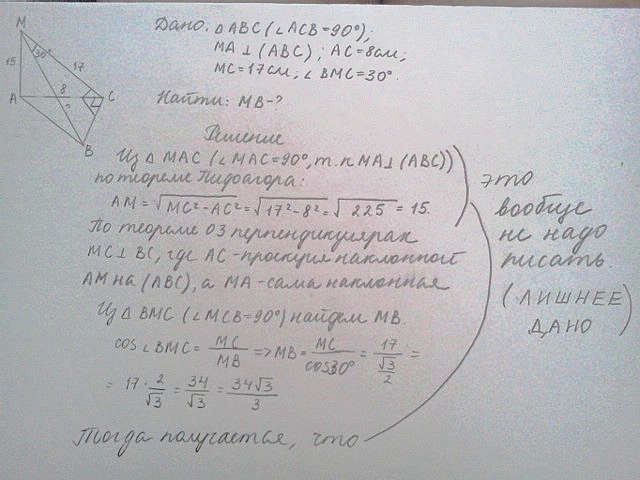 Дано: △ABC (∠ACB=90°);
MA⊥(ABC); AC=8см;
MC=17см; ∠BMC=30°.
Найти: MB-?
M
30°
17
15
8
A
C
B
Решение
Из △MAC (∠MAC=90°, т.к MA⊥(ABC))
по теореме Пифагора:
AM=√MC²-AC²=√17²-8²=√225=15.
По теореме О3 перпендикулярах
MC⊥BC, где AC-проекция наклонной
AM на (ABC), а MA-сама наклонная
Из △BMC (∠MCB=90°) найдем MB.
cos∠BMC= MC/MB =>MB= MC/cos30° = 17/(√3/2) =
= 17·2/√3 = 34/√3 = 34√3/3
Тогда получается, что
это
вообще
не надо
писать
(ЛИШНЕЕ)
ДАНО